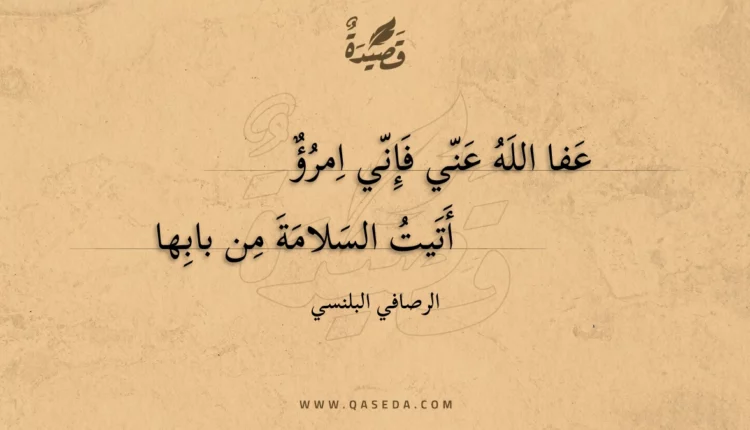 قَصِيدَةٌ
عَفا اللَهُ عَنّي فَإِنّي اِمرُؤٌ
أَتَيتُ السَلامَةَ مِن بابِها
الرصافي البلنسي
WWW.QASEDA.COM